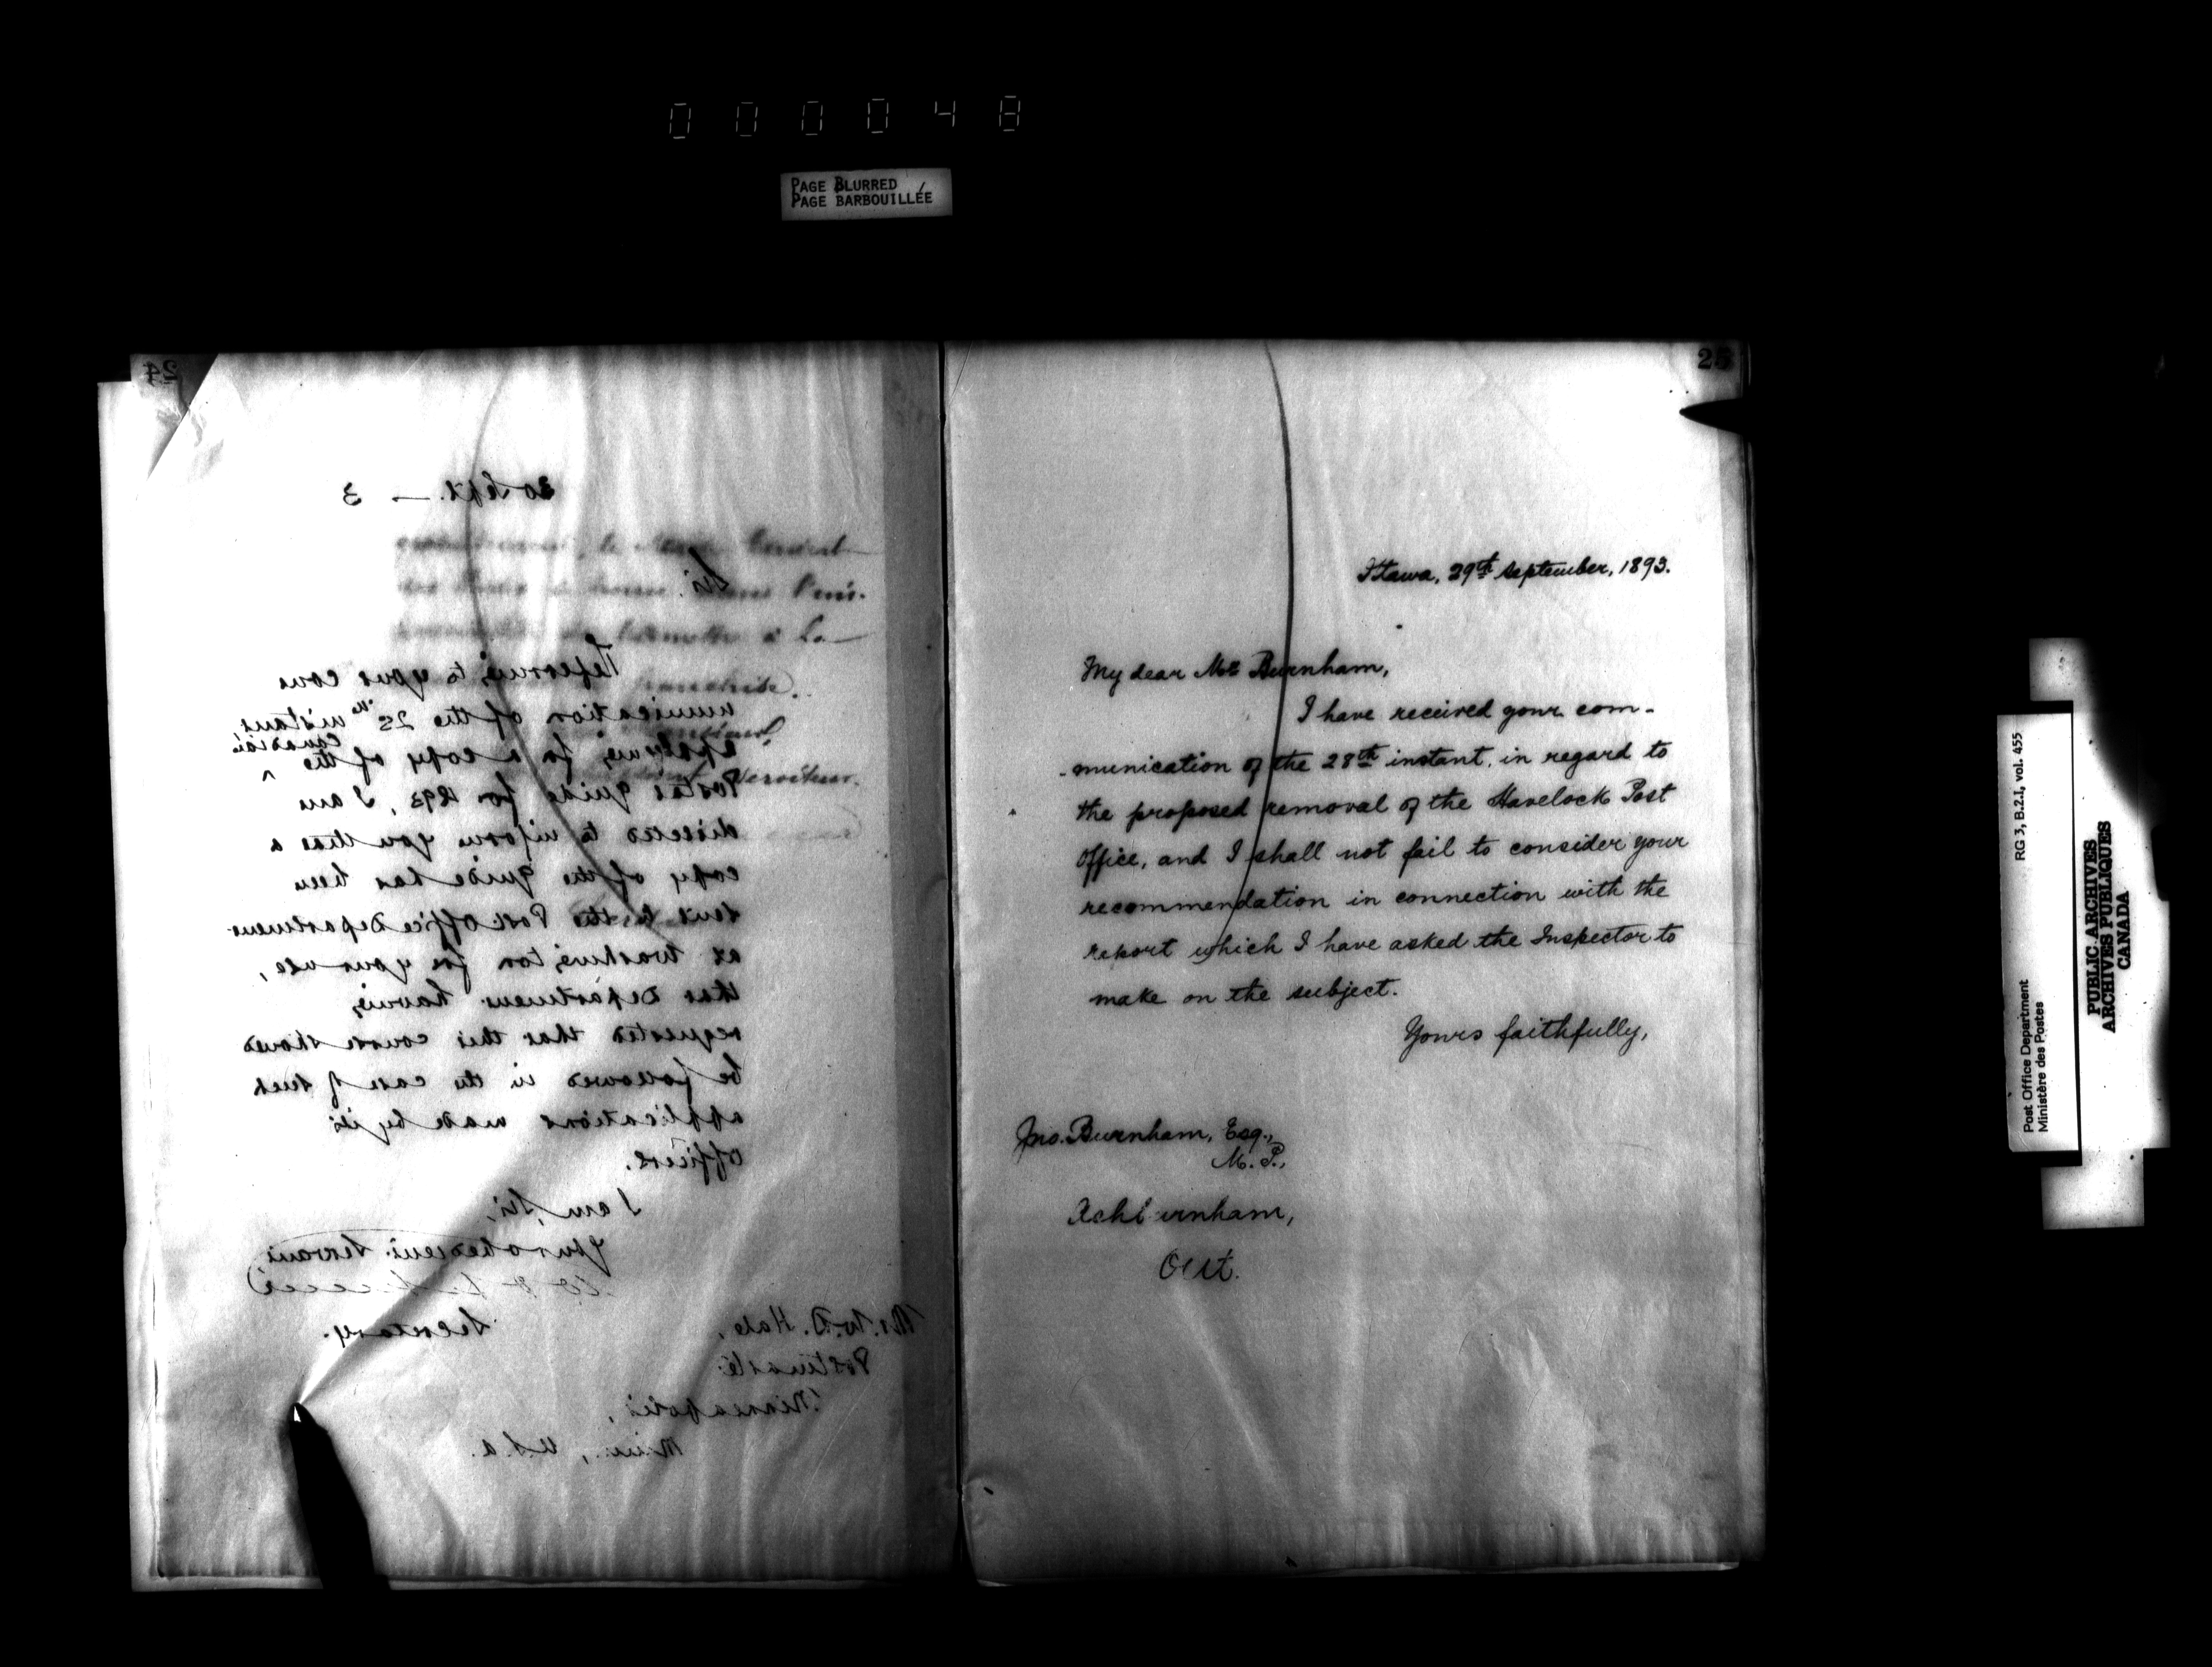 000048
PAGE BLURRED
PAGE BARBOUILLÉE
24
30 Sept. — 3
Sir,
Referring to your com
munication of the 25th instant
applying for a copy of the Canadian
Postal Guide for 1893, I am
directed to inform you that a
copy of the Guide has been
sent to the Post Office Department
at Washington for your use,
that Department having
requested that this course should
be followed in the case of such
applications made by its
officers.
I am, Sir,
Your obedient Servant,
Secretary.
Mr. W. D. Hale,
Postmaster
Minneapolis,
Minn., U.S.A.
franchise.
Serviteur.
25
Ottawa, 29th September, 1893.
My dear Mr Burnham,
I have received your com-
-munication of the 28th instant, in regard to
the proposed removal of the Havelock Post
Office, and I shall not fail to consider your
recommendation in connection with the
report which I have asked the Inspector to
make on the subject.
Yours faithfully,
Jno. Burnham, Esq.,
M. P.,
Ashburnham,
Ont.
RG 3, B.2.I, vol. 455
Post Office Department
Ministère des Postes
PUBLIC ARCHIVES
ARCHIVES PUBLIQUES
CANADA